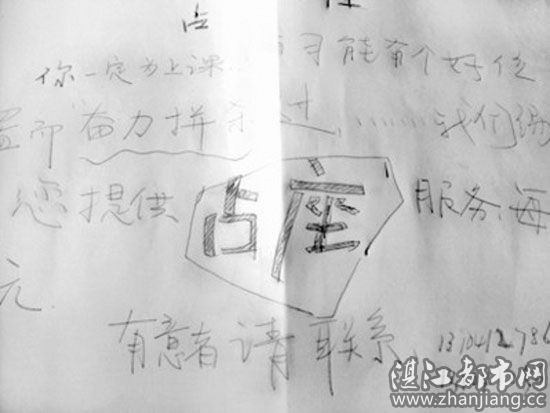 占 座
你一定为上课 可能有个好位
置而奋力拼杀过………我们
您提供占座服务,每
元
有意者请联系
湛江都市网
www.zhanjiang.cc